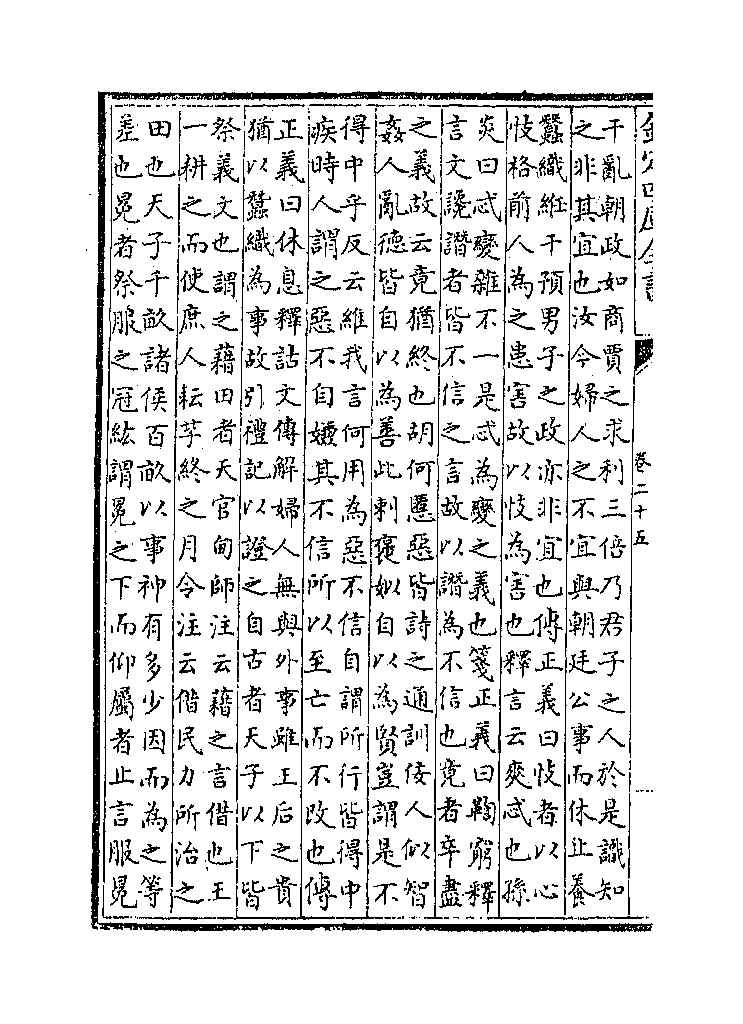 欽定四庫全書
卷二十五
干亂朝政如商賈之求利三倍乃君子之人於是識知
之非其宜也汝今婦人之不宜與朝廷公事而休止養
蠶織維干預男子之政亦非宜也傳正義曰忮者以心
忮格前人為之患害故以忮為害也釋言云爽忒也孫
炎曰忒變雜不一是忒為變之義也箋正義曰鞫窮釋
言文譖譖者皆不信之言故以譖為不信也竟者卒盡
之義故云竟猶終也胡何慝惡皆詩之通訓佞人似智
姦人亂德皆自以為善此刺褒姒自以為賢豈謂是不
得中乎反云維我言何用為惡不信自謂所行皆得中
疾時人謂之惡不自嫌其不信所以至亡而不改也傳
正義曰休息釋詁文傳解婦人無與外事雖王后之貴
猶以蠶織為事故引禮記以證之自古者天子以下皆
祭義文也謂之藉田者天官甸師注云藉之言借也王
一耕之而使庶人耘芓終之月令注云借民力所治之
田也天子千畝諸侯百畝以事神有多少因而為之等
差也冕者祭服之冠紘謂冕之下而仰屬者止言服冕